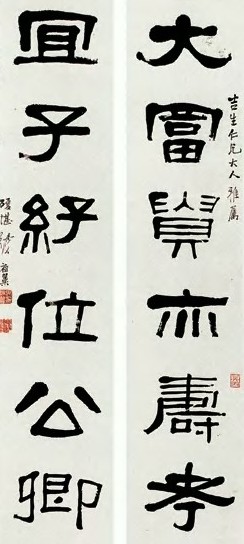 吉生仁兄大人雅屬
大富貴亦壽考
宜子孫位公卿